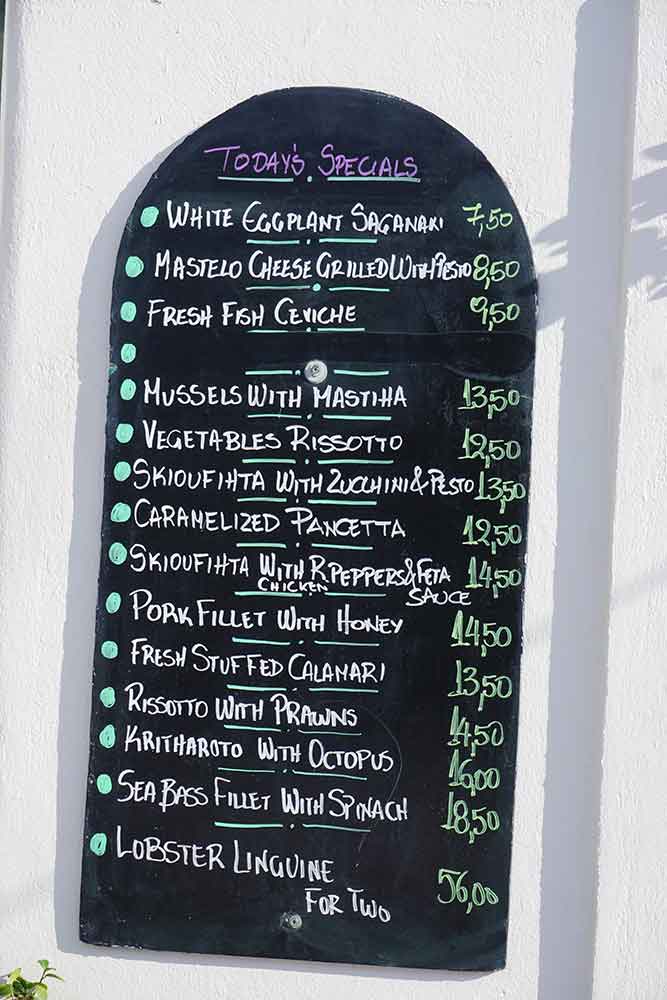 TODAY'S SPECIALS
WHITE EGGPLANT SAGANAKI 7,50
MASTELO CHEESE GRILLED WITH PESTO 8,50
FRESH FISH CEVICHE 9,50
MUSSELS WITH MASTIHA 13,50
VEGETABLES RISSOTTO 12,50
SKIOUFIHTA WITH ZUCCHINI & PESTO 13,50
CARAMELIZED PANCETTA 12,50
SKIOUFIHTA WITH R.PEPPERS & FETA 14,50
CHICKEN SAUCE
PORK FILLET WITH HONEY 14,50
FRESH STUFFED CALAMARI 13,50
RISSOTTO WITH PRAWNS 14,50
KRITHAROTO WITH OCTOPUS 16,00
SEA BASS FILLET WITH SPINACH 18,50
LOBSTER LINGUINE 56,00
FOR TWO